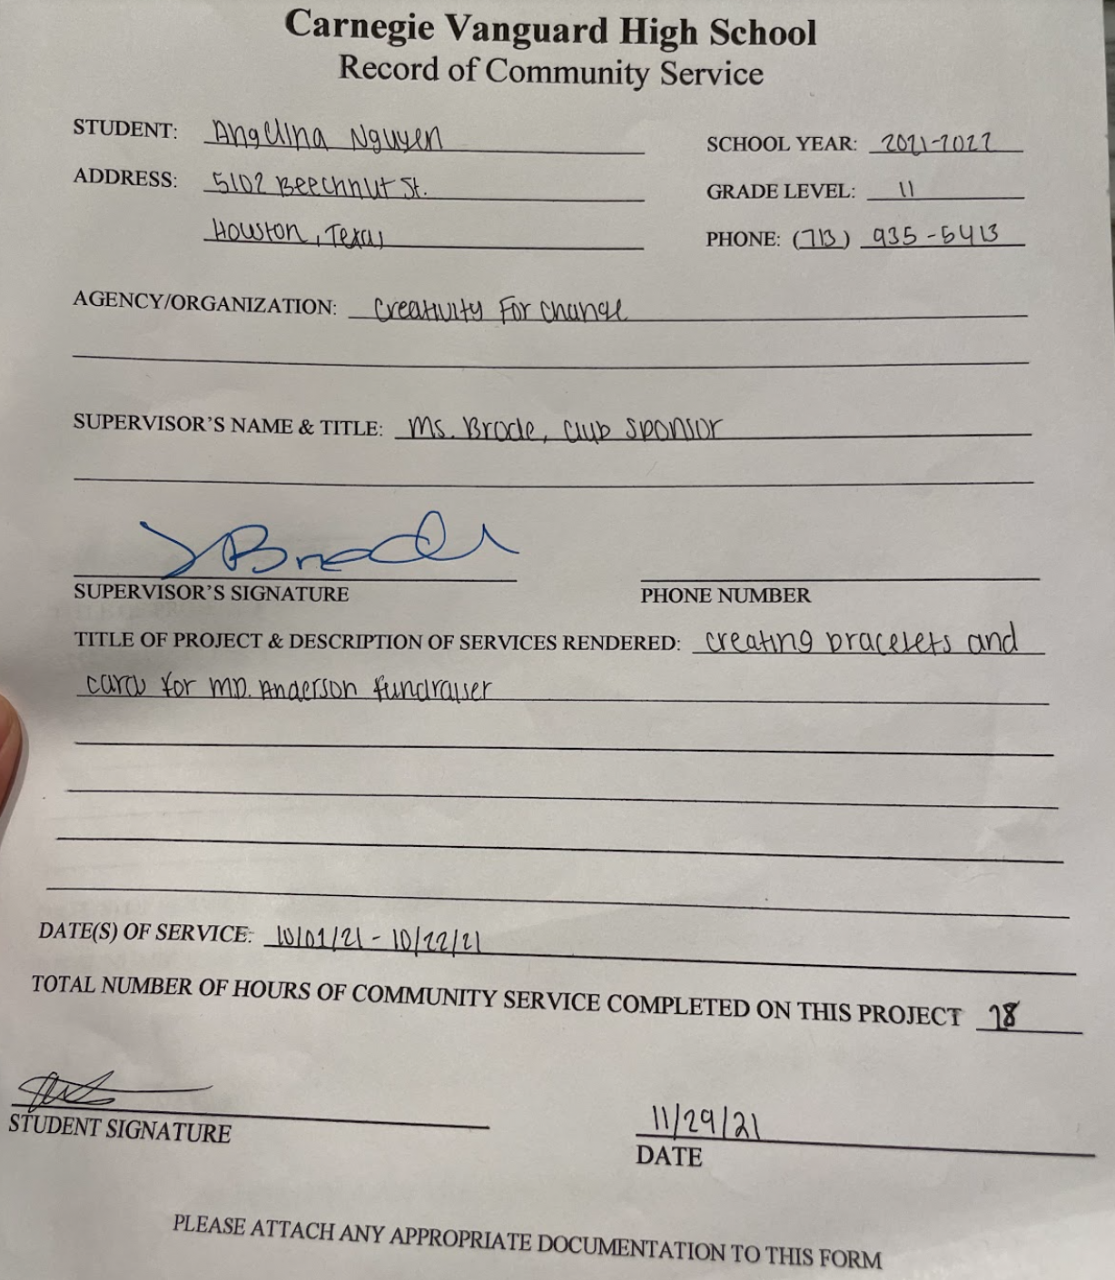 Carnegie Vanguard High School
Record of Community Service
STUDENT: Angelina Nguyen
SCHOOL YEAR: 2021-2022
ADDRESS: 5102 Beechnut St.
GRADE LEVEL: 11
Houston, Texas
PHONE: (713) 935-5413
AGENCY/ORGANIZATION: Creativity For Change
SUPERVISOR'S NAME & TITLE: Ms. Brode, club sponsor
SUPERVISOR'S SIGNATURE
PHONE NUMBER
TITLE OF PROJECT & DESCRIPTION OF SERVICES RENDERED: creating bracelets and
cards for MD. Anderson fundraiser
DATE(S) OF SERVICE: 10/01/21 - 10/22/21
TOTAL NUMBER OF HOURS OF COMMUNITY SERVICE COMPLETED ON THIS PROJECT
STUDENT SIGNATURE
11/29/21
DATE
PLEASE ATTACH ANY APPROPRIATE DOCUMENTATION TO THIS FORM